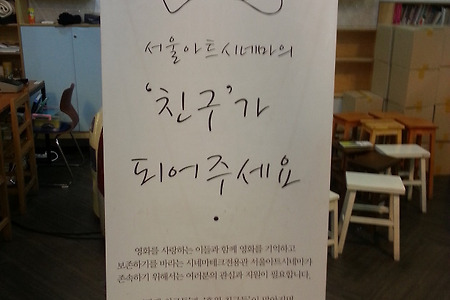 서울아트시네마의
'친구'가
되어주세요
영화를 사랑하는 이들과 함께 영화를 기억하고
보존하기를 바라는 시네마테크전용관 서울아트시네마가
존속하기 위해서는 여러분의 관심과 지원이 필요합니다.